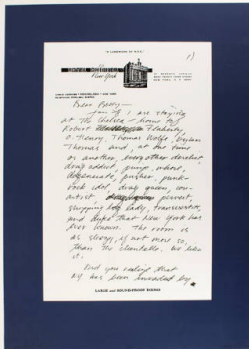 1)
New York
Dear Barry —
Jan & I are staying
at the Chelsea — home of
Robert Flaherty
O. Henry, Thomas Wolfe, Dylan
Thomas and, at one time
or another, every other derelict,
drug addict, pimp, whore,
degenerate, pusher, punk-
rock idol, drug queen, con-
artist pervert,
shopping bag lady, transvestite,
and dype that New York has
ever known. The room is
as sleazy, if not more so,
than the clientelle. We like
it.
And you realize that
NY has been invaded by
LARGE and SOUND-PROOF ROOMS